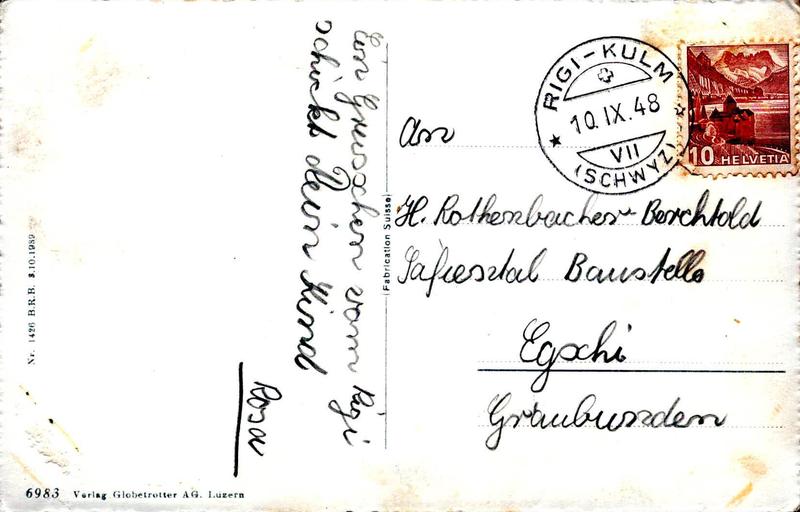 Ein Grüsschen vom Rigi
schickt Dein Kind
Rosa
Nr. 1426 B.R.B. 3.10.1939
6983 Verlag Globetrotter AG. Luzern
Fabrication Suisse
RIGI-KULM
10.IX.48
VII
(SCHWYZ)
10 HELVETIA
An
H. Rothenbacher-Berchtold
Safiental Baustelle
Egschi
Graubünden